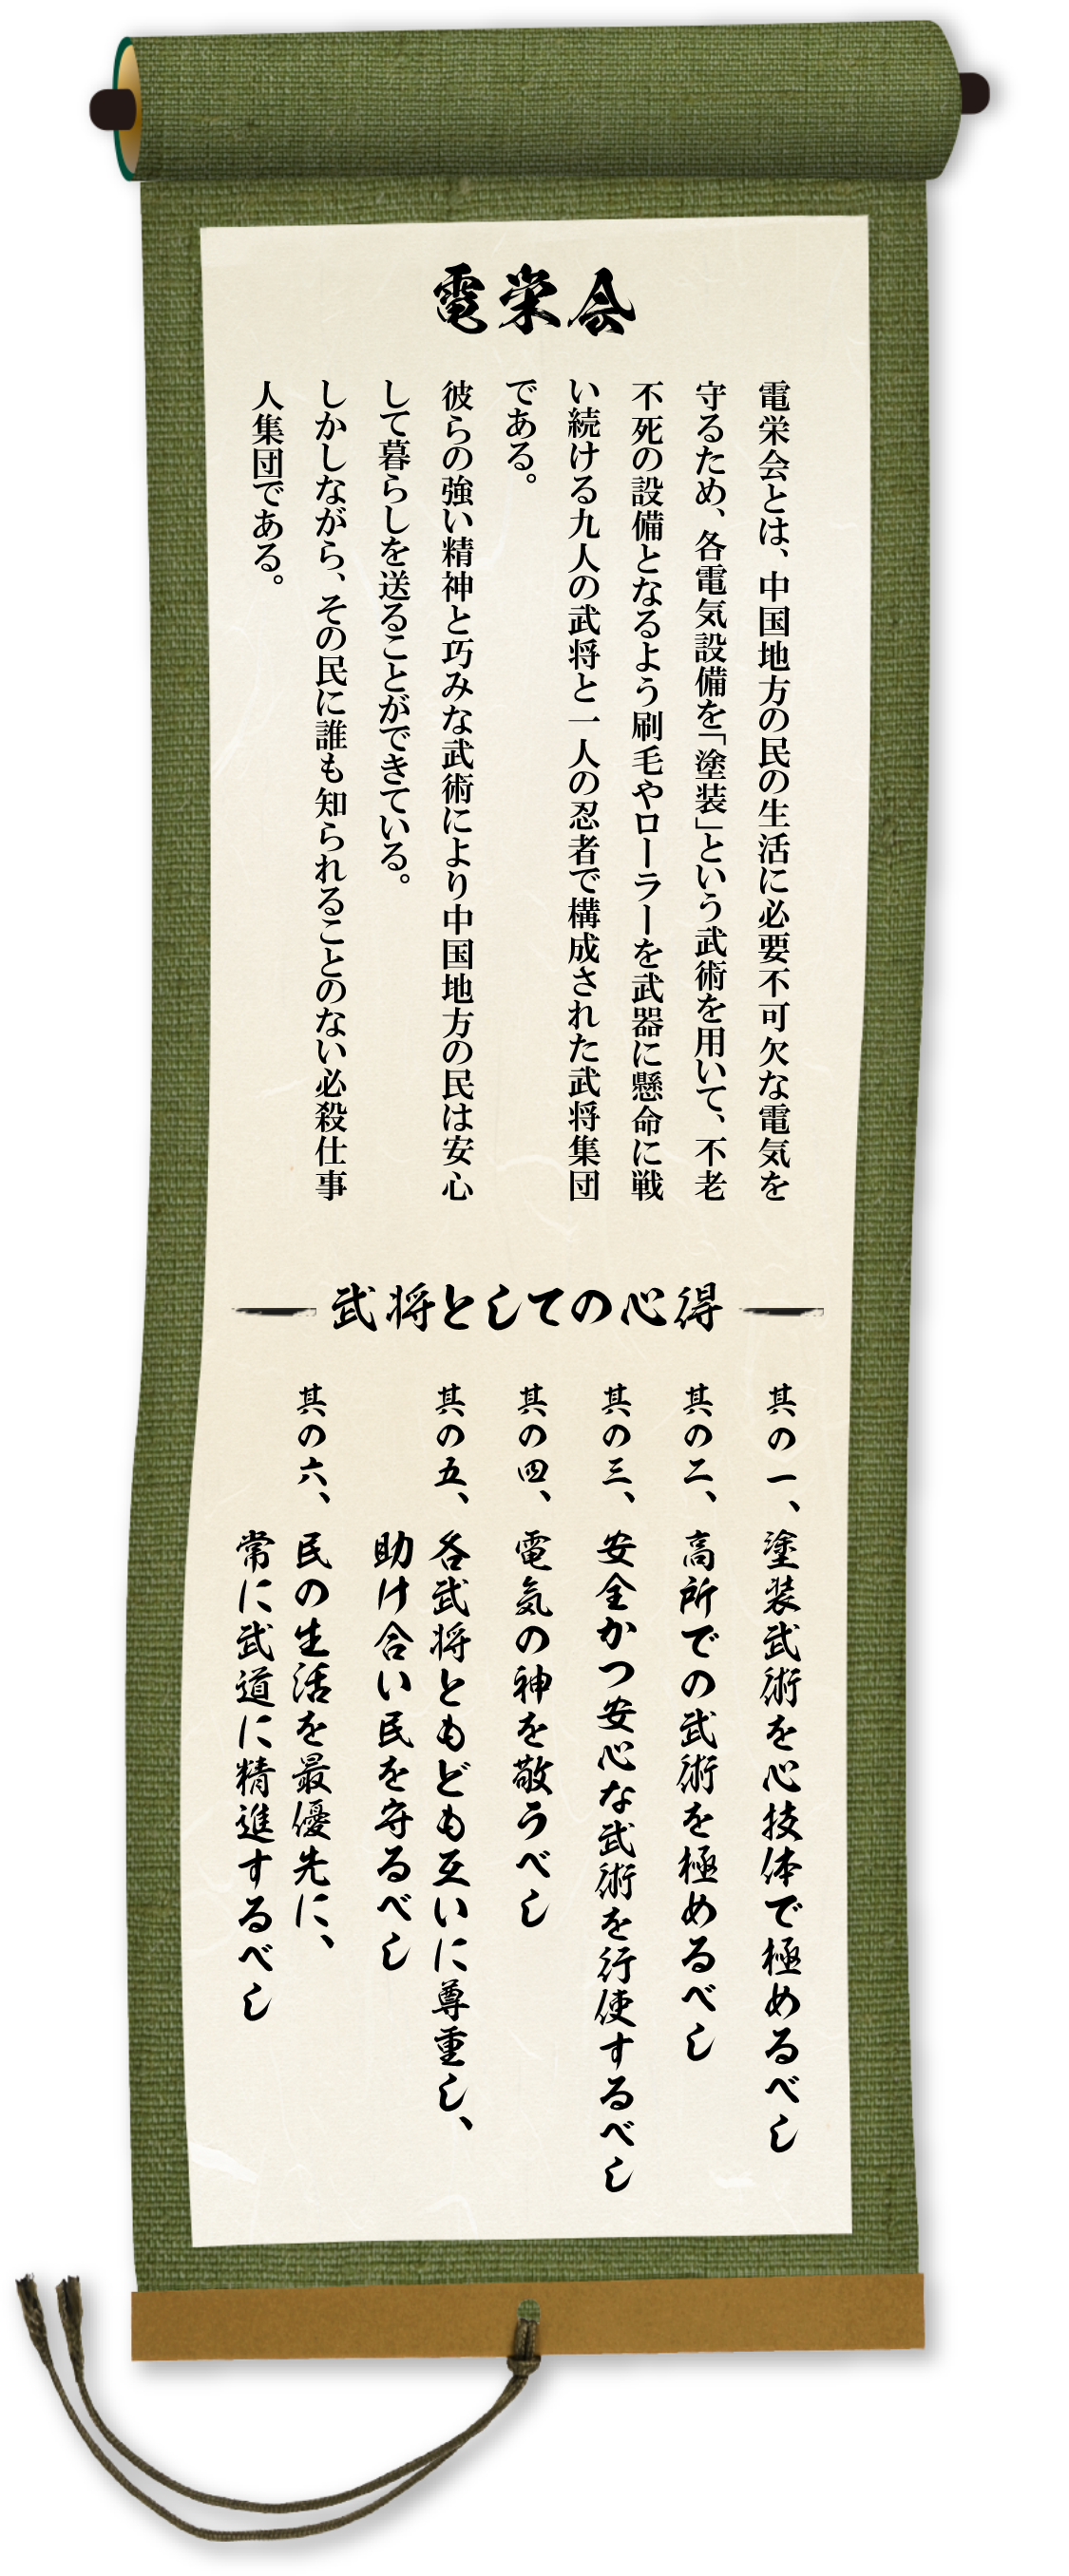 電栄会
電栄会とは、中国地方の民の生活に必要不可欠な電気を
守るため、各電気設備を「塗装」という武術を用いて、不老
不死の設備となるよう刷毛やローラーを武器に懸命に戦
い続ける九人の武将と一人の忍者で構成された武将集団
である。
彼らの強い精神と巧みな武術により中国地方の民は安心
して暮らしを送ることができている。
しかしながら、その民に誰も知られることのない必殺仕事
人集団である。
武将としての心得
其の一、塗装武術を心技体で極めるべし
其の二、高所での武術を極めるべし
其の三、安全かつ安心な武術を行使するべし
其の四、電気の神を敬うべし
其の五、各武将ともども互いに尊重し、
助け合い民を守るべし
其の六、民の生活を最優先に、
常に武道に精進するべし